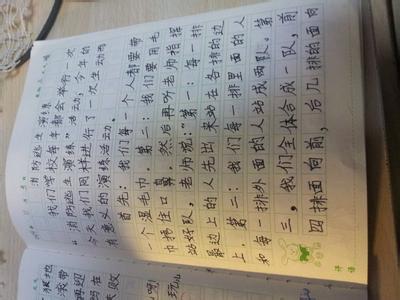 消防逃生演练
我们学校每年都会举行一次
“消防逃生演练”活动,今年的
今天我们同样进行了一次生动而
有意义的演练活动。
首先:我们每一个人都要带
一个湿毛巾。第二:我们要用毛
巾捂住口鼻,然后再听老师指挥
站好队,老师说:“每一排
最边上的人先出来站在各排的边
上,第二:我们每一排里面的人
和每一排外面的人站成两队。第
三,我们全体合成一队,前
四排面向前,后几排的面向
评语
滚带
再迎
失败